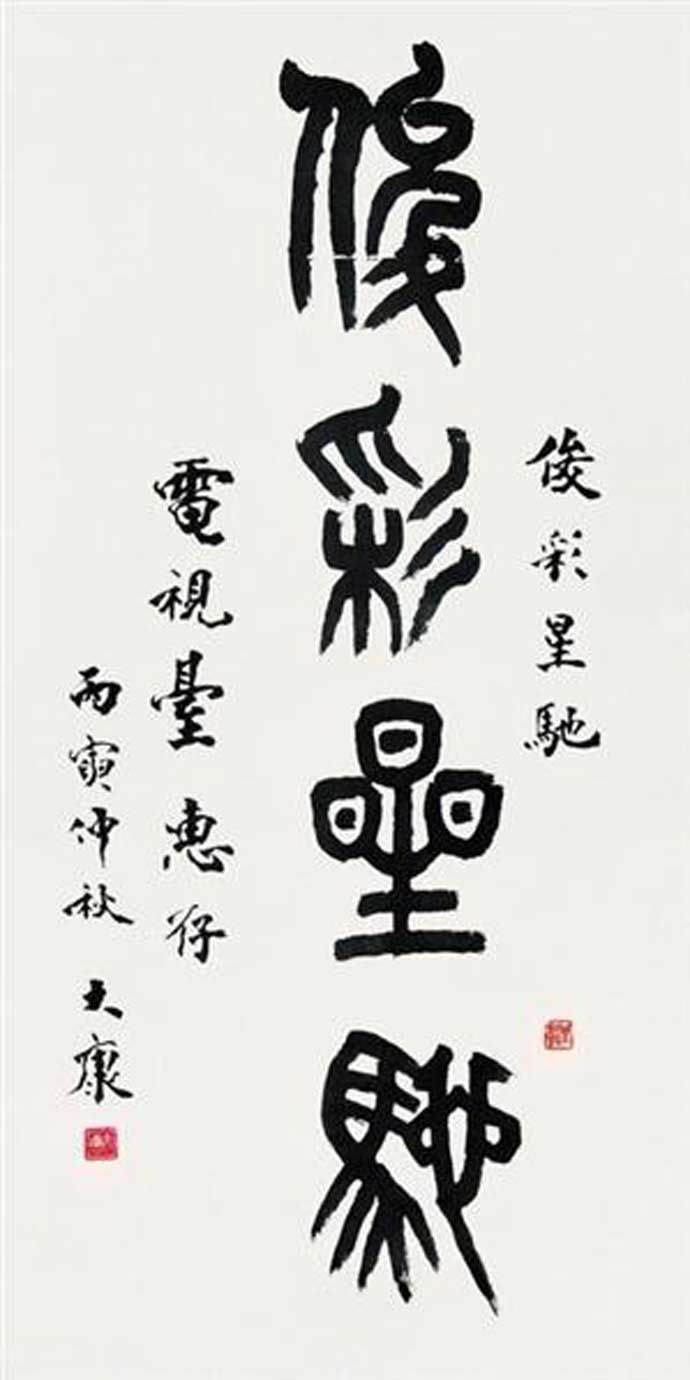 俊彩星馳
俊彩星馳
電視臺惠存
丙寅仲秋 大康